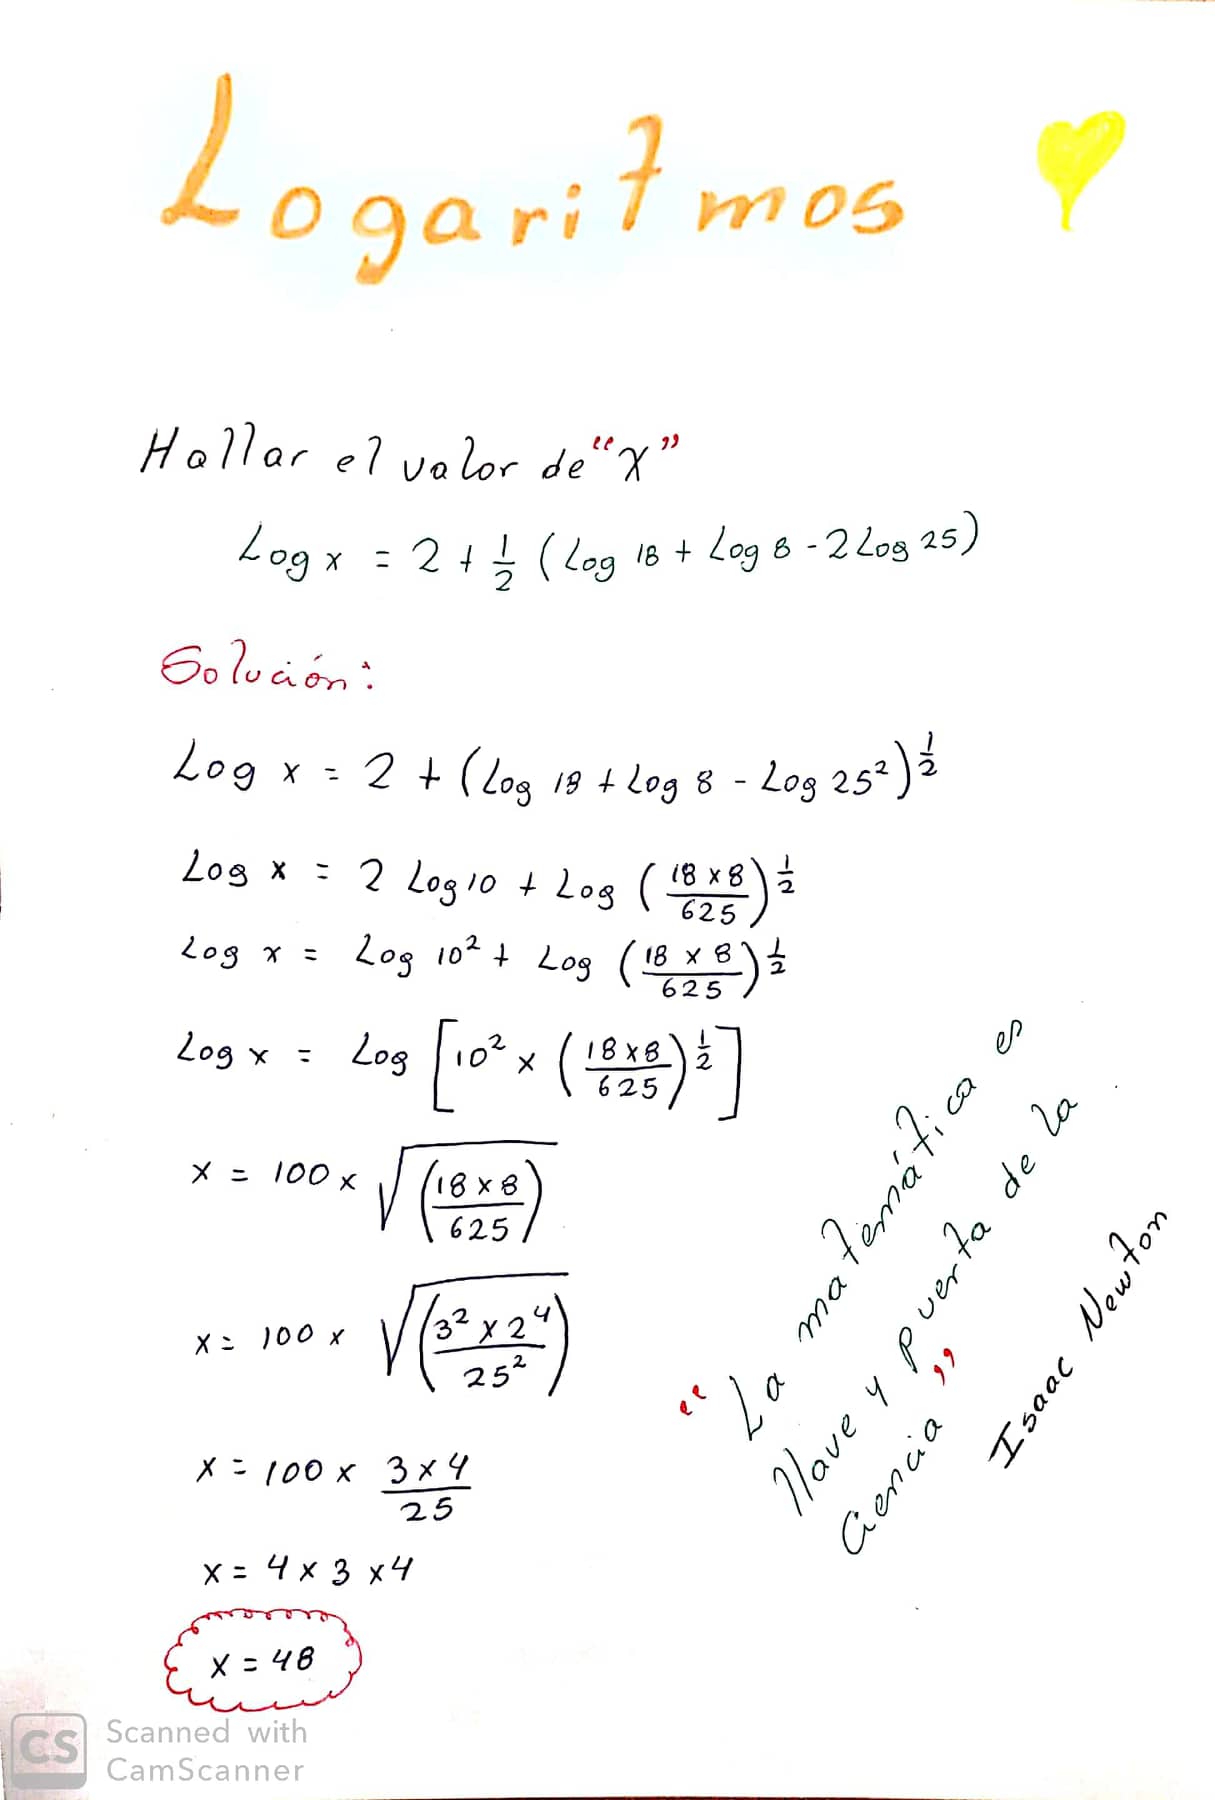 Logaritmos
Hallar el valor de "x"
Log x = 2 + 1/2 (Log 18 + Log 8 - 2 Log 25)
Solución:
Log x = 2 + (Log 18 + Log 8 - Log 25²)^1/2
Log x = 2 Log 10 + Log (18 x 8 / 625)^1/2
Log x = Log 10² + Log (18 x 8 / 625)^1/2
Log x = Log [10² x (18 x 8 / 625)^1/2]
x = 100 x √(18 x 8 / 625)
x = 100 x √(3² x 2⁴ / 25²)
x = 100 x 3 x 4 / 25
x = 4 x 3 x 4
x = 48
"La matemática es
llave y puerta de la
Ciencia"
Isaac Newton
CS
Scanned with
CamScanner